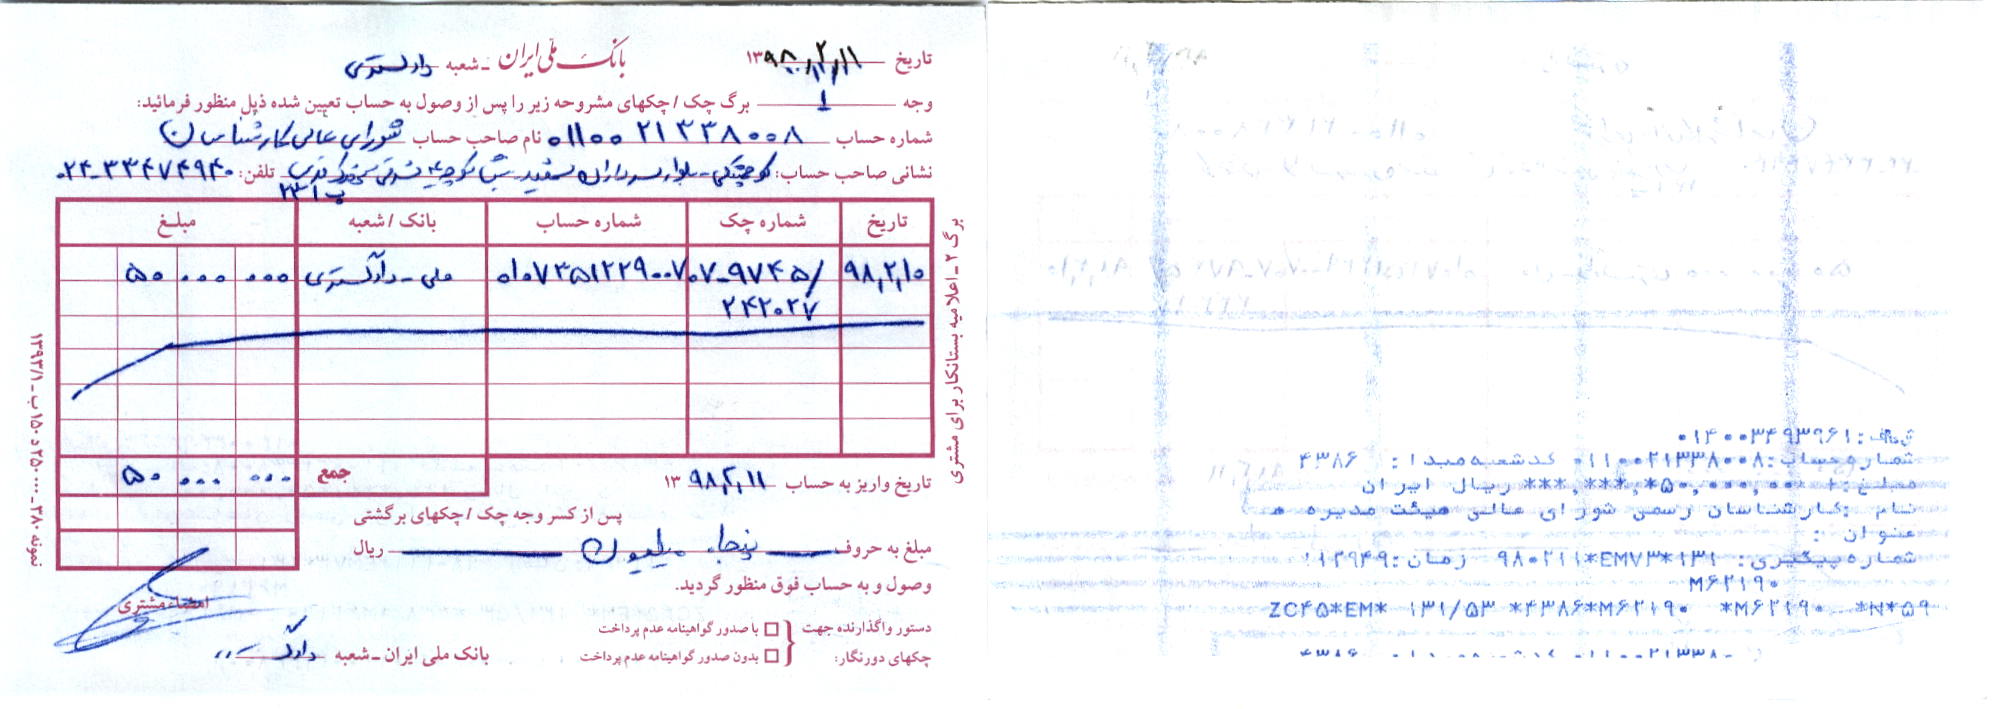 تاریخ ۱۳۹۸,۲,۱۱ بانک ملی ایران - شعبه دادگستری
وجه ۱ برگ چک / چکهای مشروحه زیر را پس از وصول به حساب تعیین شده ذیل منظور فرمائید:
شماره حساب ۰۱۱۰۰۲۱۳۳۸۰۰۸ نام صاحب حساب شورای عالی کارشناسان
نشانی صاحب حساب: بلوار سرداران تلفن: ۰۲۴-۳۳۴۷۴۹۴۰
تاریخ شماره چک شماره حساب بانک / شعبه مبلغ
۹۸,۲,۱۰ ۹۷۴۵-۰۷/ ۰۱۰۷۳۵۱۲۲۹۰۰۷ ملی - دادگستری ۵۰ ۰۰۰ ۰۰۰
۲۴۲۰۲۷
جمع ۵۰ ۰۰۰ ۰۰۰
تاریخ واریز به حساب ۱۳۹۸,۲,۱۱
پس از کسر وجه چک / چکهای برگشتی
مبلغ به حروف پنجاه میلیون ریال
وصول و به حساب فوق منظور گردید.
امضاء مشتری
دستور واگذارنده جهت چکهای دورنگار:
با صدور گواهینامه عدم پرداخت
بدون صدور گواهینامه عدم پرداخت
بانک ملی ایران - شعبه
برگ ۲ - اعلامیه بستانکار برای مشتری
نمونه ۳۸۰ - ۲۵۰۰۰۰ د ۱۵۰ ب - ۱۳۹۳/۱
۰۱۴۰۰۳۴۹۳۹۶۱
شماره حساب: ۰۱۱۰۰۲۱۳۳۸۰۰۸ کد شعبه مبدا: ۴۳۸۶
مبلغ: ***,***,*۵۰,۰۰۰,۰۰۰ ریال ایران
نام: کارشناسان رسمی شورای عالی هیئت مدیره
عنوان :
شماره پیگیری: ۹۸۰۲۱۱*EMV۳*۱۳۱ زمان: ۱۱۲۹۴۹
M۶۲۱۹۰
ZC۴۵*EM* ۱۳۱/۵۳ *۴۳۸۶*M۶۲۱۹۰ *M۶۲۱۹۰ *N*۵۹